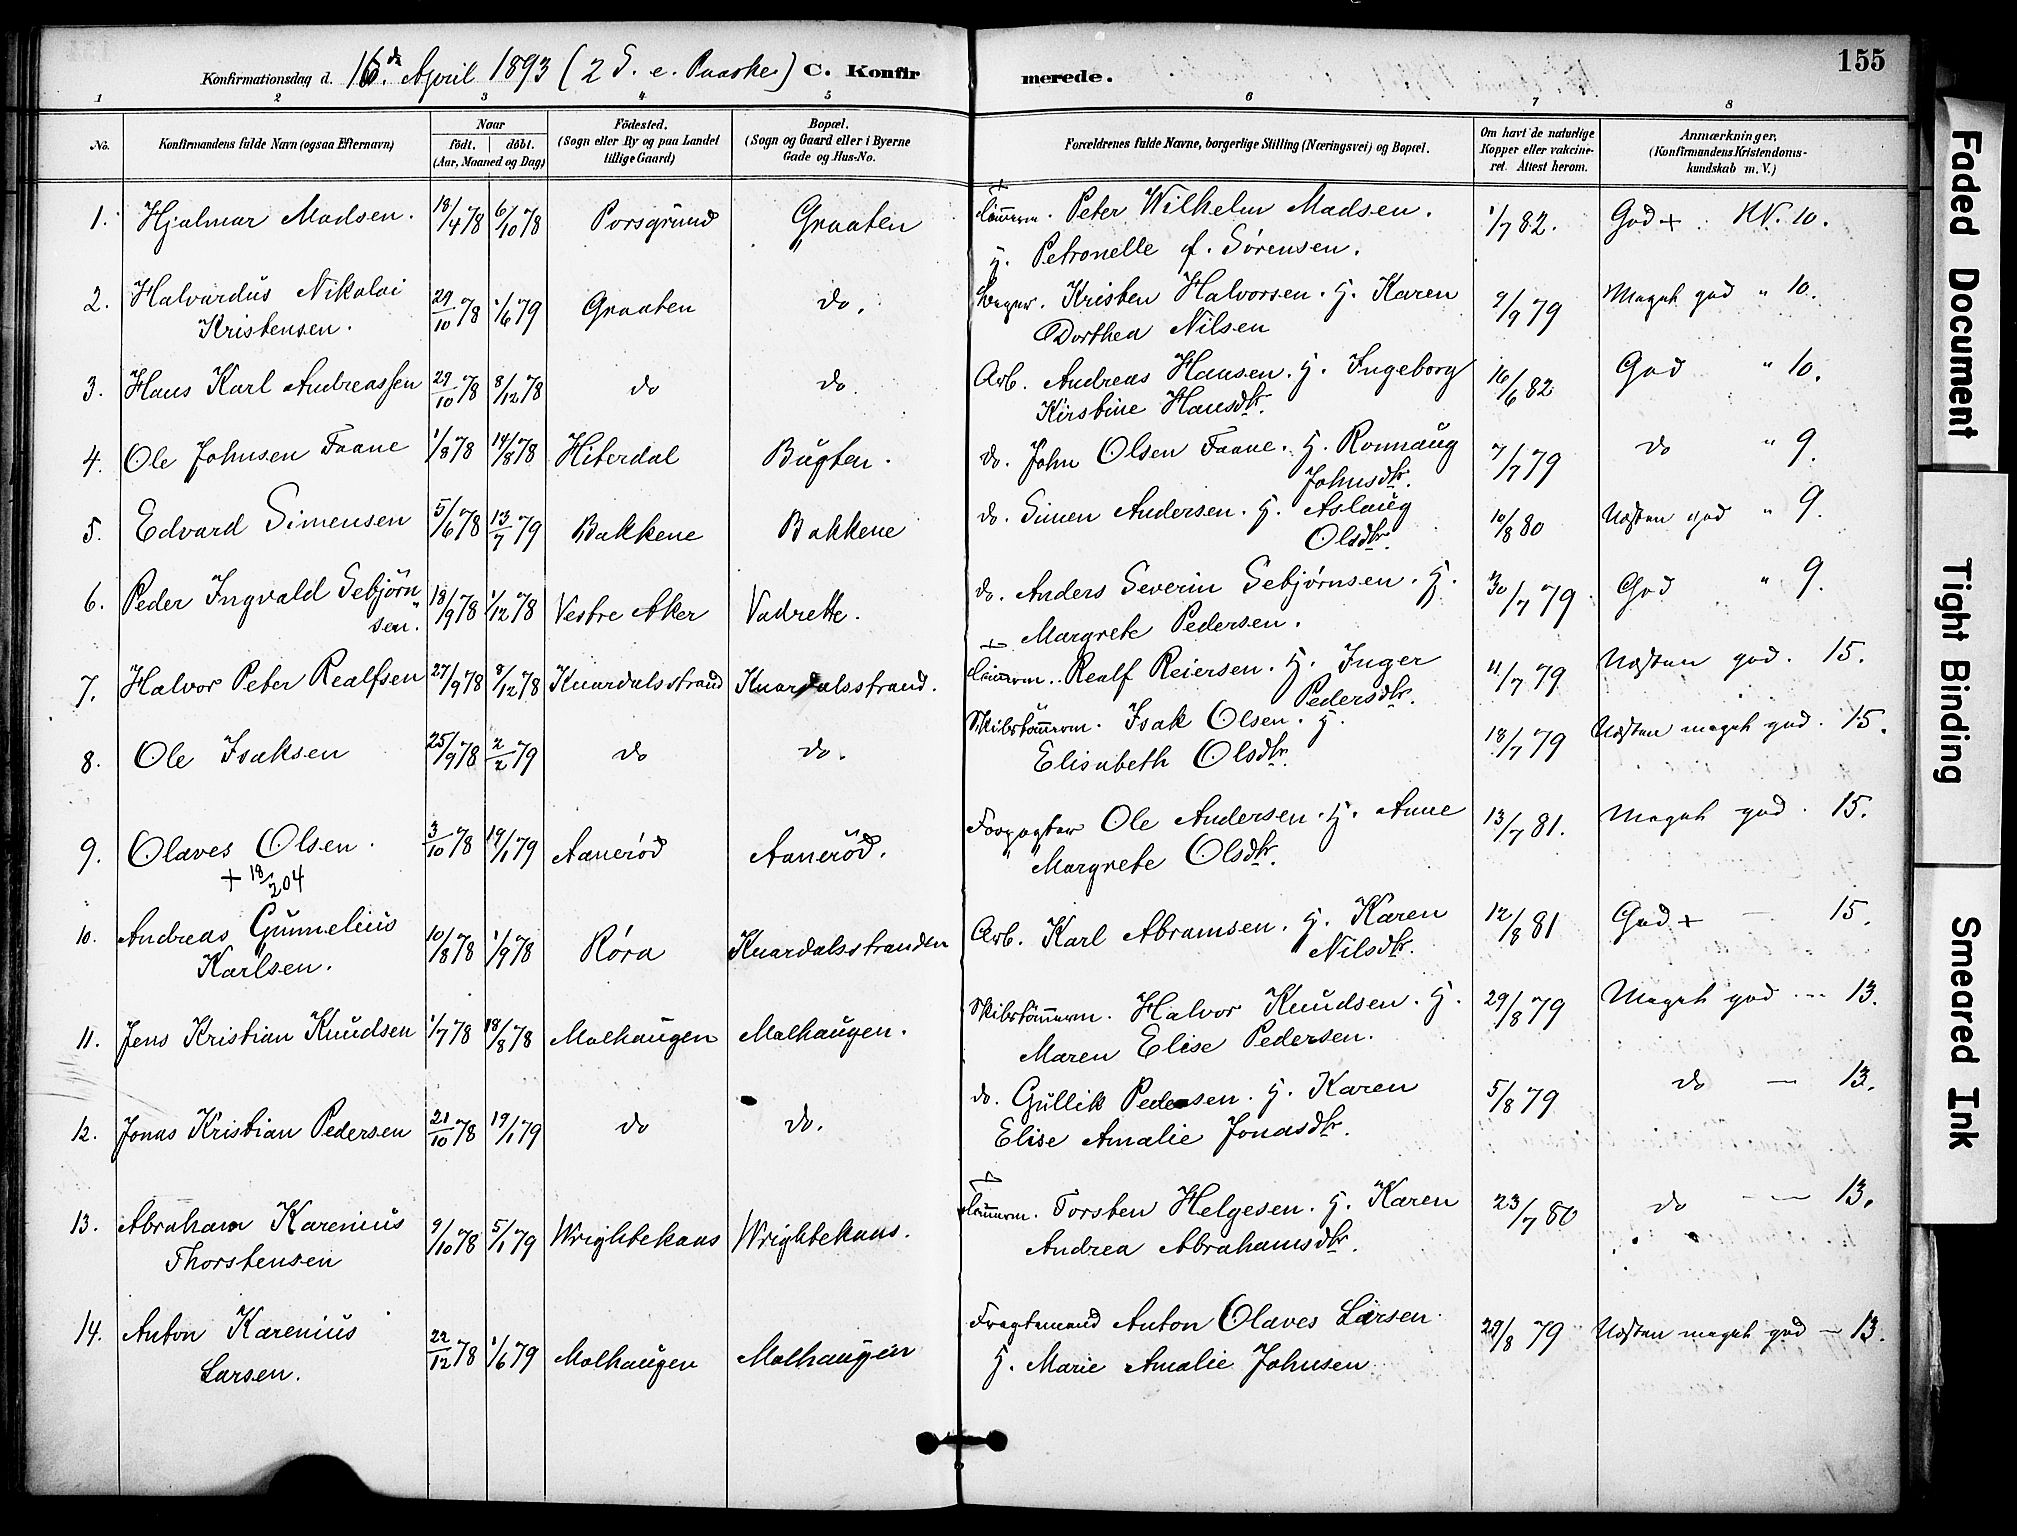 155
Konfirmationsdag d. 16de April 1893 (2 S. e. Paaske) C. Konfirmerede.
1 2 3 4 5 6 7 8
No.
Konfirmandens fulde Navn (ogsaa Efternavn)
Naar
födt. döbt.
(Aar, Maaned og Dag)
Födested.
(Sogn eller By og paa Landet
tillige Gaard)
Bopæl.
(Sogn og Gaard eller i Byerne
Gade og Hus-No.
Forældrenes fulde Navne, borgerlige Stilling (Næringsvei) og Bopæl.
Om havt de naturlige
Kopper eller vakcine-
ret. Attest herom.
Anmærkninger,
(Konfirmandens Kristendoms-
kundskab m. V.)
1. Hjalmar Madsen. 18/4 78 6/10 78 Porsgrund Graaten Tömmerm. Peter Wilhelm Madsen. 1/7 82. God + . KN. 10.
H. Petronelle f. Sørensen.
2. Halvardus Nikolai 29/10 78 1/6 79 Graaten do. Kristen Halvorsen. H. Karen 9/9 79 Meget god " 10.
Kristensen. Dorthea Nilsen
3. Hans Karl Andreassen 29/10 78 8/12 78 do do. Arb. Andreas Hansen. H. Ingeborg 16/6 82 God " 10.
Kirstine Hansdtr.
4. Ole Johnsen Faane 1/8 78 14/8 78 Hiterdal Bugten. do. John Olsen Faane. H. Ronnaug 7/7 79 do " 9.
Johnsdtr.
5. Edvard Simensen 5/6 78 13/7 79 Bakkene Bakkene do. Simen Andersen. H. Aslaug 10/8 80 Næsten god " 9.
Olsdtr.
6. Peder Ingvald Sebjörn 18/9 78 1/12 78 Vestre Aker Vadrette. do. Anders Severin Sebjørnsen. H. 30/7 79. God " 9.
sen. Margrete Pedersen.
7. Halvor Peter Realfsen 27/9 78 8/12 78 Knardalsstrand Knardalsstrand. Tömmerm. Realf Reiersen. H. Inger 11/7 79 Næsten god. 15.
Pedersdtr.
8. Ole Isaksen 25/9 78 2/2 79 do do. Skibstömmerm. Isak Olsen. H. 18/7 79 Næsten meget god. 15.
Elisabeth Olsdtr.
9. Olaves Olsen. 3/10 78 19/1 79 Aanerød Aanerød. Forpagter Ole Andersen. H. Anne 13/7 81. Meget god. 15.
+ 18/2 04 Margrete Olsdtr.
10. Andreas Gunnelius 10/8 78 1/9 78 Röra Knardalsstranden Arb. Karl Abramsen. H. Karen 12/8 81 God + — 15.
Karlsen. Nilsdtr.
11. Jens Kristian Knudsen 1/7 78 18/8 78 Molhaugen Molhaugen. Skibstömmerm. Halvor Knudsen. H. 29/8 79 Meget god — 13.
Maren Elise Pedersen.
12. Jonas Kristian Pedersen 21/10 78 19/1 79 do do. do. Gullik Pedersen. H. Karen 5/8 79 do — 13.
Elise Amalie Jonasdtr.
13. Abraham Karenius 9/10 78 5/1 79 Wrightekaas Wrightekaas. Tömmerm. Torsten Helgesen. H. Karen 23/7 80 do — 13.
Thorstensen Andrea Abrahamsdtr.
14. Anton Karenius 22/12 78 1/6 79 Molhaugen Molhaugen Fragtemand Anton Olaves Larsen 29/8 79 Næsten meget god — 13.
Larsen. H. Marie Amalie Johnsen
Faded Document
Tight Binding
Smeared Ink